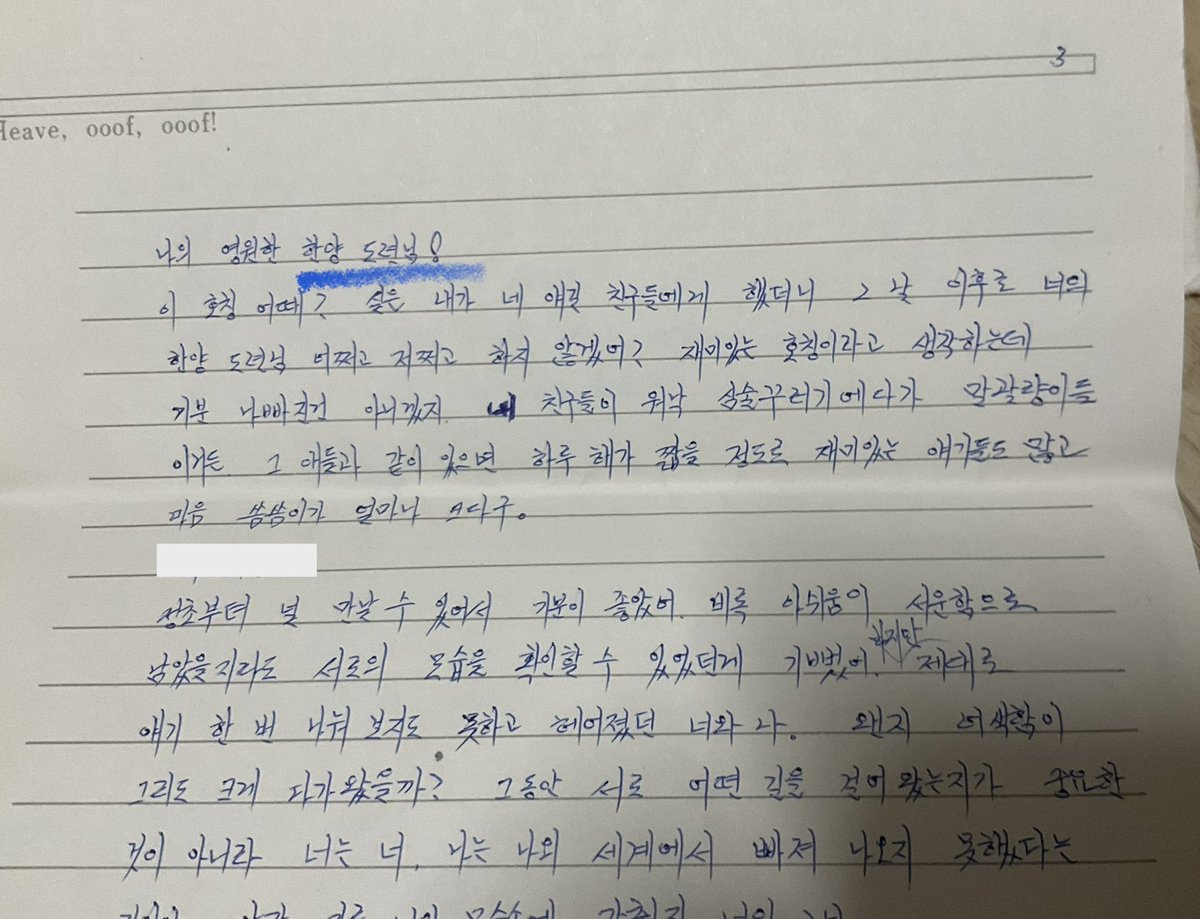 3
Heave, ooof, ooof!
나의 영원한 한양 도련님!
이 호칭 어때? 실은 내가 네 얘길 친구들에게 했더니 그 날 이후로 너의
한양 도련님 어쩌고 저쩌고 하지 않겠어? 재미있는 호칭이라고 생각하는데
기분 나빠진건 아니겠지. 내 친구들이 워낙 심술꾸러기에다가 말괄량이들
이거든. 그 애들과 같이 있으면 하루 해가 짧을 정도로 재미있는 얘기들도 많고
마음 씀씀이가 얼마나 크다구.
정초부터 널 만날 수 있어서 기분이 좋았어. 비록 아쉬움이 서운함으로
남았을지라도 서로의 모습을 확인할 수 있었던게 기뻤어. 하지만 제대로
얘기 한 번 나눠 보지도 못하고 헤어졌던 너와 나. 왠지 어색함이
그리도 크게 다가왔을까? 그동안 서로 어떤 길을 걸어 왔는지가 중요한
것이 아니라 너는 너, 나는 나의 세계에서 빠져 나오지 못했다는